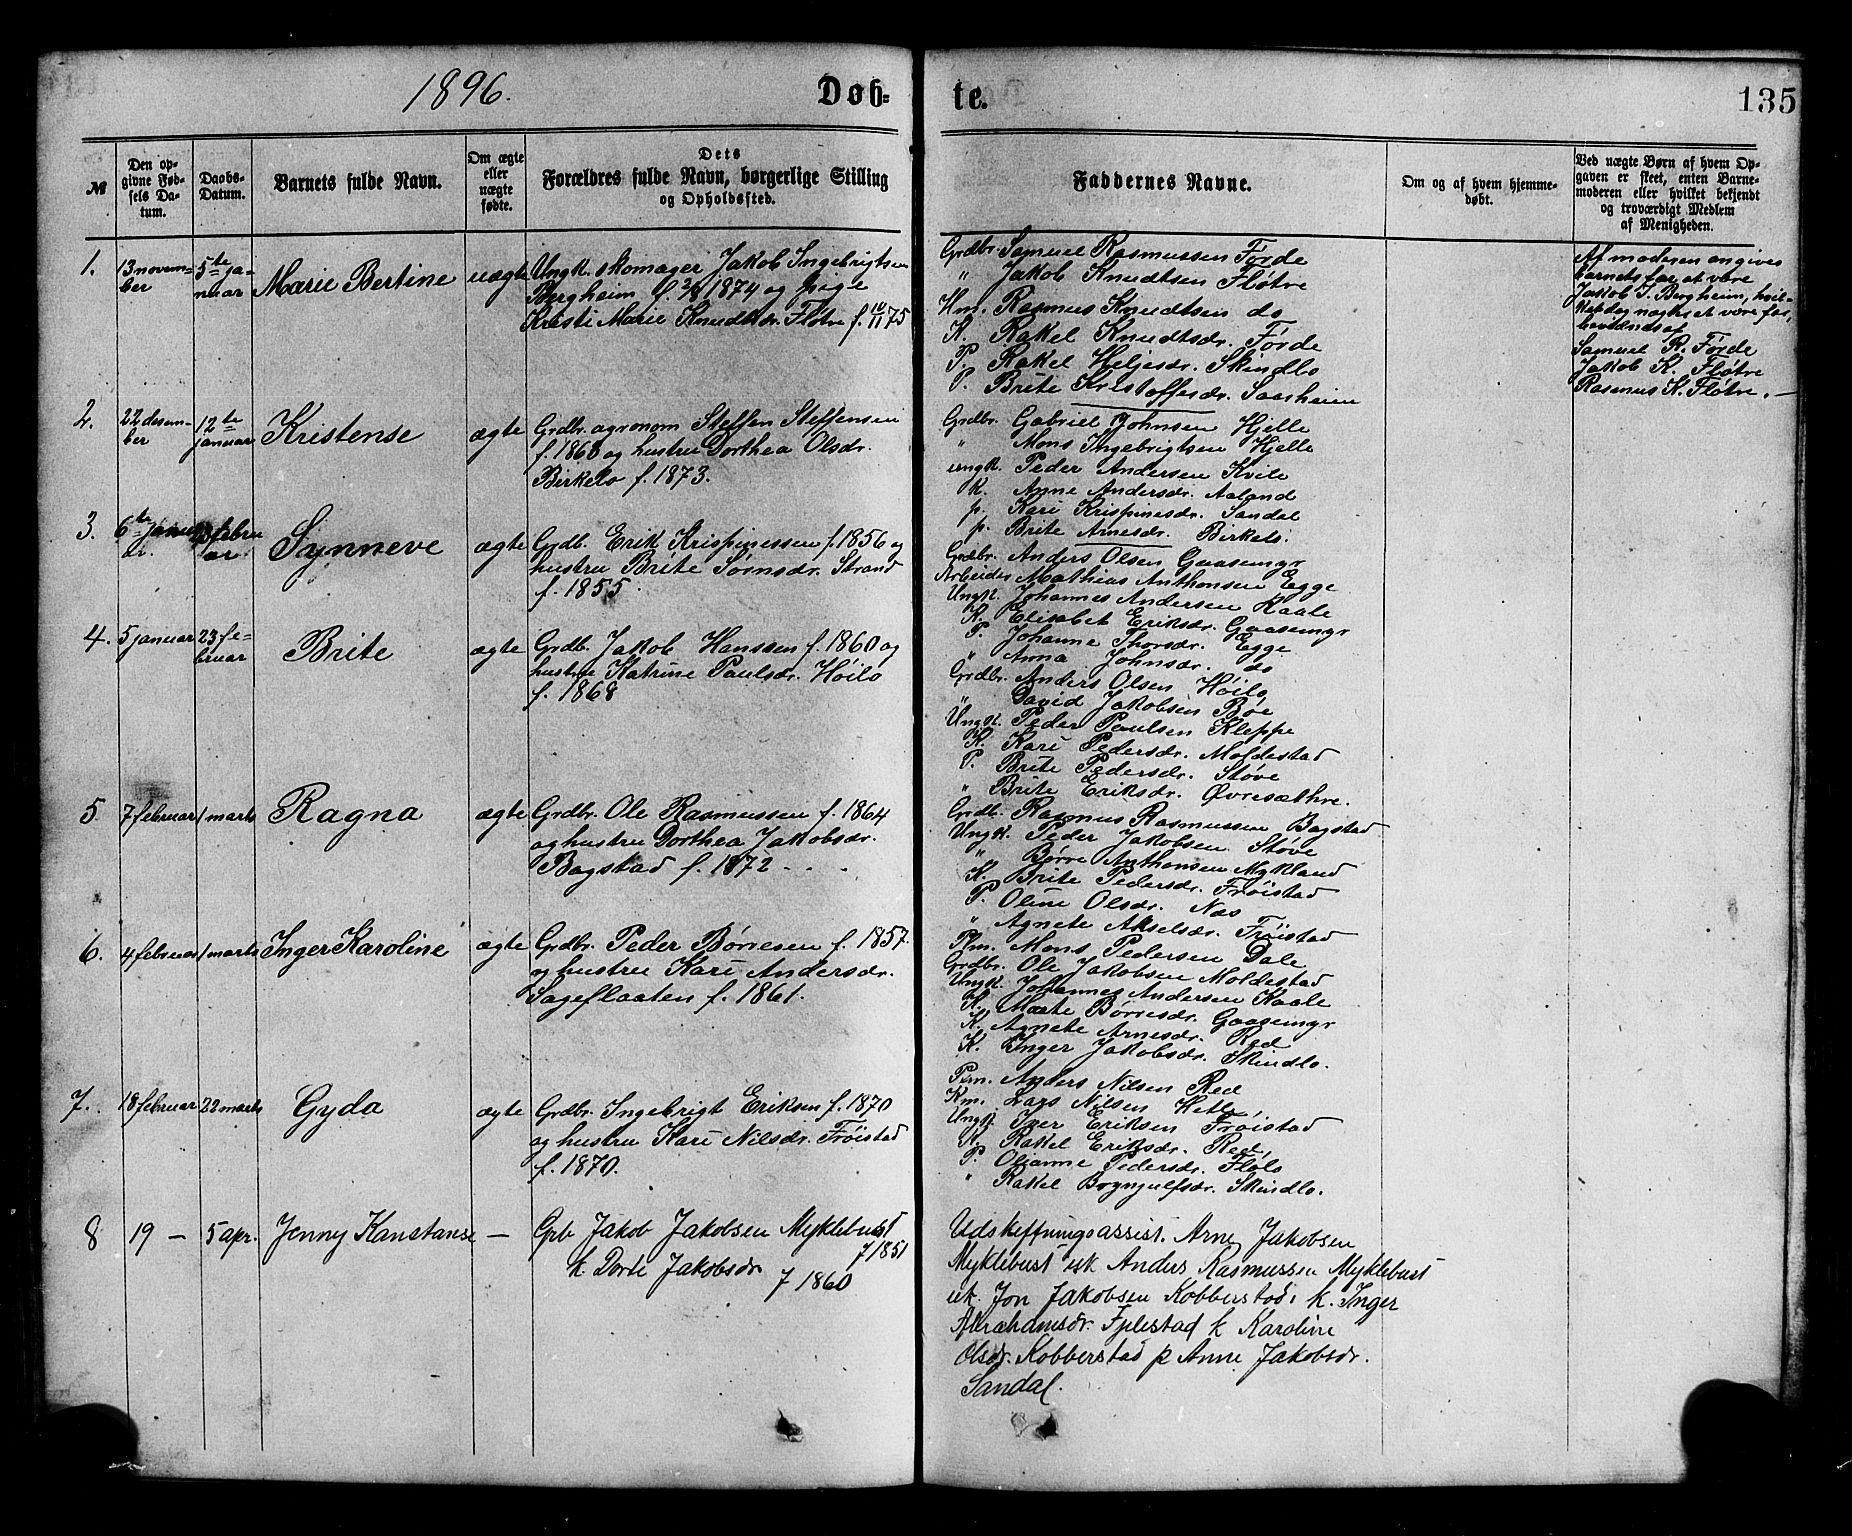 1896.
Døb-
te.
135
№
Den op-
givne Fød-
sels Da-
tum.
Daabs-
Datum.
Barnets fulde Navn.
Om ægte
eller
uægte
fødte.
Dets
Forældres fulde Navn, borgerlige Stilling
og Opholdssted.
Faddernes Navne.
Om og af hvem hjemme-
døbt.
Ved uægte Børn af hvem Op-
gaven er skeet, enten Barne-
moderen eller hvilket bekjendt
og troværdigt Medlem
af Menigheden.
1.
13 novem-
ber
5te ja-
nuar
Marie Bertine
uægte
Ungk. skomager Jakob Ingebrigtsen
Bergheim f. 1874 og pige
Kristi Marie Knudtsdr. Fløtre f. 11/11 75
Grdbr. Samuel Rasmussen Førde
" Jakob Knudtsen Fløtre
Hm. Rasmus Knudtsen do
K. Rakel Knudtsdr. Førde
P. Rakel Heljesdr. Skindlo
P. Brite Kristoffersdr. Saasheim
Af moderen angives
barnets far at være
Jakob I. Bergheim, hvil-
ket dog nægtes at være for,
bevidnes af
Samuel R. Førde
Jakob K. Fløtre
Rasmus K. Fløtre. —
2.
22 desem-
ber
12te
januar
Kristense
ægte
Grdbr. agronom Steffen Steffensen
f. 1868 og hustru Dorthea Olsdr.
Birkelo f. 1873.
Grdbr. Gabriel Johnsen Hjelle
" Mons Ingebrigtsen Hjelle
ungk. Peder Andersen Kvile
k. Anne Andersdr. Aaland
p. Kari Krispinesdr. Sandal
p. Brite Arnesdr. Birkelo.
3.
6te janu-
ar.
februar
Synneve
ægte
Grdb. Erik Krispinessen f. 1856 og
hustru Brite Sørnsdr. Strand
f. 1855.
Grdbr. Anders Olsen Gaasemyr
Arbeider Mathias Anthonsen Egge
Ungk. Johannes Andersen Kaale
K. Elisabet Eriksdr. Gaasemyr
P. Johanne Thorsdr. Egge
" Anna Johnsdr. do
4.
5 januar
23 fe-
bruar
Brite
ægte
Grdb. Jakob Hanssen f. 1860 og
hustru Katrine Paulsdr. Høilo
f. 1868
Grdbr. Anders Olsen Høilo
" David Jakobsen Bøe
Ungk. Peder Paulsen Kleppe
K. Kari Pedersdr. Moldestad
P. Brite Pedersdr. Støve
" Brite Eriksdr. Øvresæthre.
5
7 februar
1 marts
Ragna
ægte
Grdbr. Ole Rasmussen f. 1864
og hustru Dorthea Jakobsdr.
Bagstad f. 1872
Grdb. Rasmus Rasmussen Bagstad
Ungk. Peder Jakobsen Støve
" Børre Anthonsen Mykland
K. Brite Pedersdr. Frøistad
P. Oline Olsdr. Næs
" Agnete Akselsdr. Frøistad
6.
4 februar
1 marts
Inger Karoline
ægte
Grdbr. Peder Børresen f. 1857.
og hustru Kari Andersdr.
Sageflaaten f. 1861.
Plm. Mons Pedersen Dale
Grdbr. Ole Jakobsen Moldestad
Ungk. Johannes Andersen Kaale
K. Maate Børresdr. Gaasemyr
K. Agnete Arnesdr. Red
K. Inger Jakobsdr. Skindlo.
7.
18 februar
22 marts
Gyda
ægte
Grdbr. Ingebrigt Eriksen f. 1870
og hustru Kari Nilsdr. Frøistad
f. 1870.
Plm. Anders Nilsen Red
Km. Lars Nilsen Hetle
Ungk. Iver Eriksen Frøistad
K. Rakel Eriksdr. Red,
P. Olianne Pedersdr. Flølo
" Rakel Brynjulfsdr. Skindlo.
8
19 —
5 apr.
Jenny Kanstanse
—
Grb Jakob Jakobsen Myklebust
f 1851
k. Dorte Jakobsdr
f 1860
Udskiftningsassist. Arne Jakobsen
Myklebust usk Anders Rasmussen Myklebust
ut. Jon Jakobsen Kobberstad, k. Inger
Abrahamsdr. Fjelestad k Karoline
Olsdr. Kobberstad p Anne Jakobsdr.
Sandal.